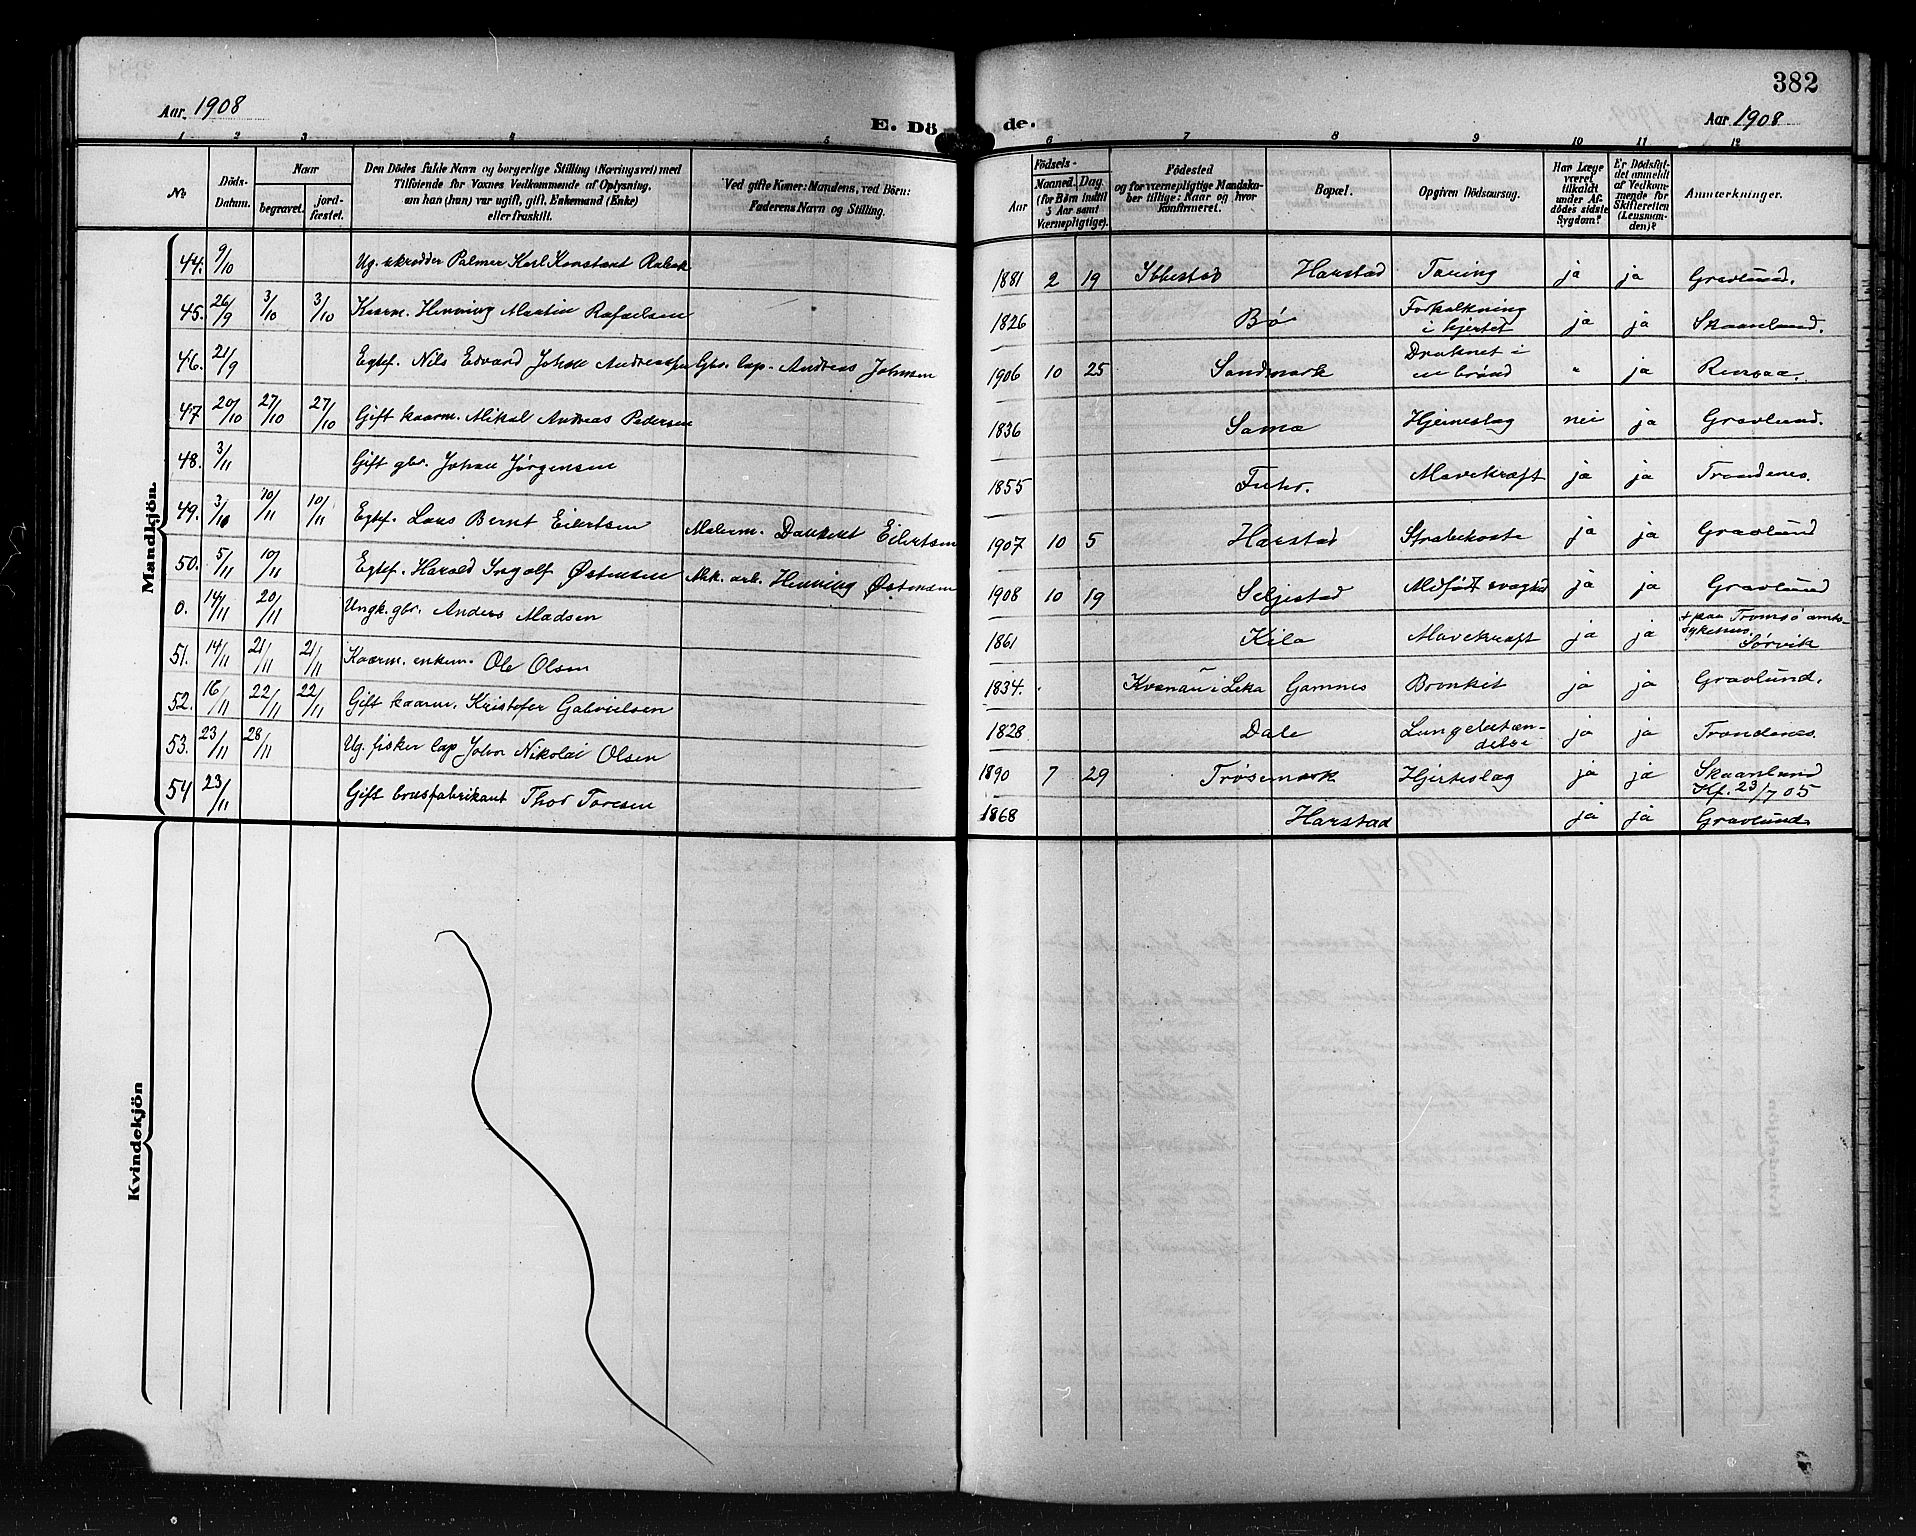 382
Aar 1908
E. Döde.
Aar 1908
1 2 3 4 5 6 7 8 9 10 11 12
No
Döds-Datum.
Naar
begravet.
jord-fæstet.
Den Dödes fulde Navn og borgerlige Stilling (Næringsvei) med
Tilföiende for Voxnes Vedkommende af Oplysning,
om han (hun) var ugift, gift, Enkemand (Enke)
eller fraskilt.
Ved gifte Koner: Mandens, ved Börn:
Faderens Navn og Stilling.
Födsels-
Aar
Maaned. Dag
(for Börn indtil
5 Aar samt
Værnepligtige).
Födested
og for værnepligtige Mandska-
ber tillige: Naar og hvor
konfirmeret.
Bopæl.
Opgiven Dödsaarsag.
Har Læge
været
tilkaldt
under Af-
dödes sidste
Sygdom?
Er Dödsfal-
det anmeldt
af Vedkom-
mende for
Skifteretten
(Lensman-
den)?
Anmærkninger.
Mandkjön.
44. 9/10 Ug. skrædder Palmer Karl Konstant 1881 2 19 Ibbestad Harstad Tæring ja ja Gravlund.
45. 26/9 3/10 3/10 Kaarm. Henning Martin Rafaelsen 1826 Bø Forkalkning i hjertet ja ja Skaanlund.
46. 21/9 Egtef. Nils Edvard Johan Andreassen Gbr. lap. Andreas Johnsen 1906 10 25 Sandmark Druknet i en brønd " ja Rensaa.
47 20/10 27/10 27/10 Gift kaarm. Mikal Andreas Pedersen 1836 Sama Hjerneslag nei ja Gravlund.
48. 3/11 Gift gbr. Johan Jørgensen 1855 Mavekræft ja ja Trondenes.
49. 3/11 10/11 10/11 Egtef. Laus Bernt Eilertsen Malerm. Eilertsen 1907 10 5 Harstad Strubehoste ja ja Gravlund
50. 5/11 10/11 Egtef. Harald Ingolf Østensen Mek. arb. Henning Østensen 1908 10 19 Seljestad Medfødt svaghed ja ja Gravlund
0. 14/11 20/11 Ungk. gbr. Anders Madsen 1861 Kila Mavekræft ja ja + paa Tromsø amts-sykehus. Sørvik
51. 14/11 21/11 21/11 Kaarm. enkem. Ole Olsen 1834. Kvenau i Leka Gamnes Bronkit ja ja Gravlund.
52. 16/11 22/11 22/11 Gift kaarm. Kristofer Gabrielsen 1828 Dale Lungebetæn-delse ja ja Trondenes.
53. 23/11 28/11 Ug. fisker lap John Nikolai Olsen 1890 7 29 Trøsemark Hjerteslag ja ja Skaanlund Kf. 23/7 05
54 23/11 Gift brusfabrikant Thor Toresen 1868 Harstad ja ja Gravlund
Kvindekjön